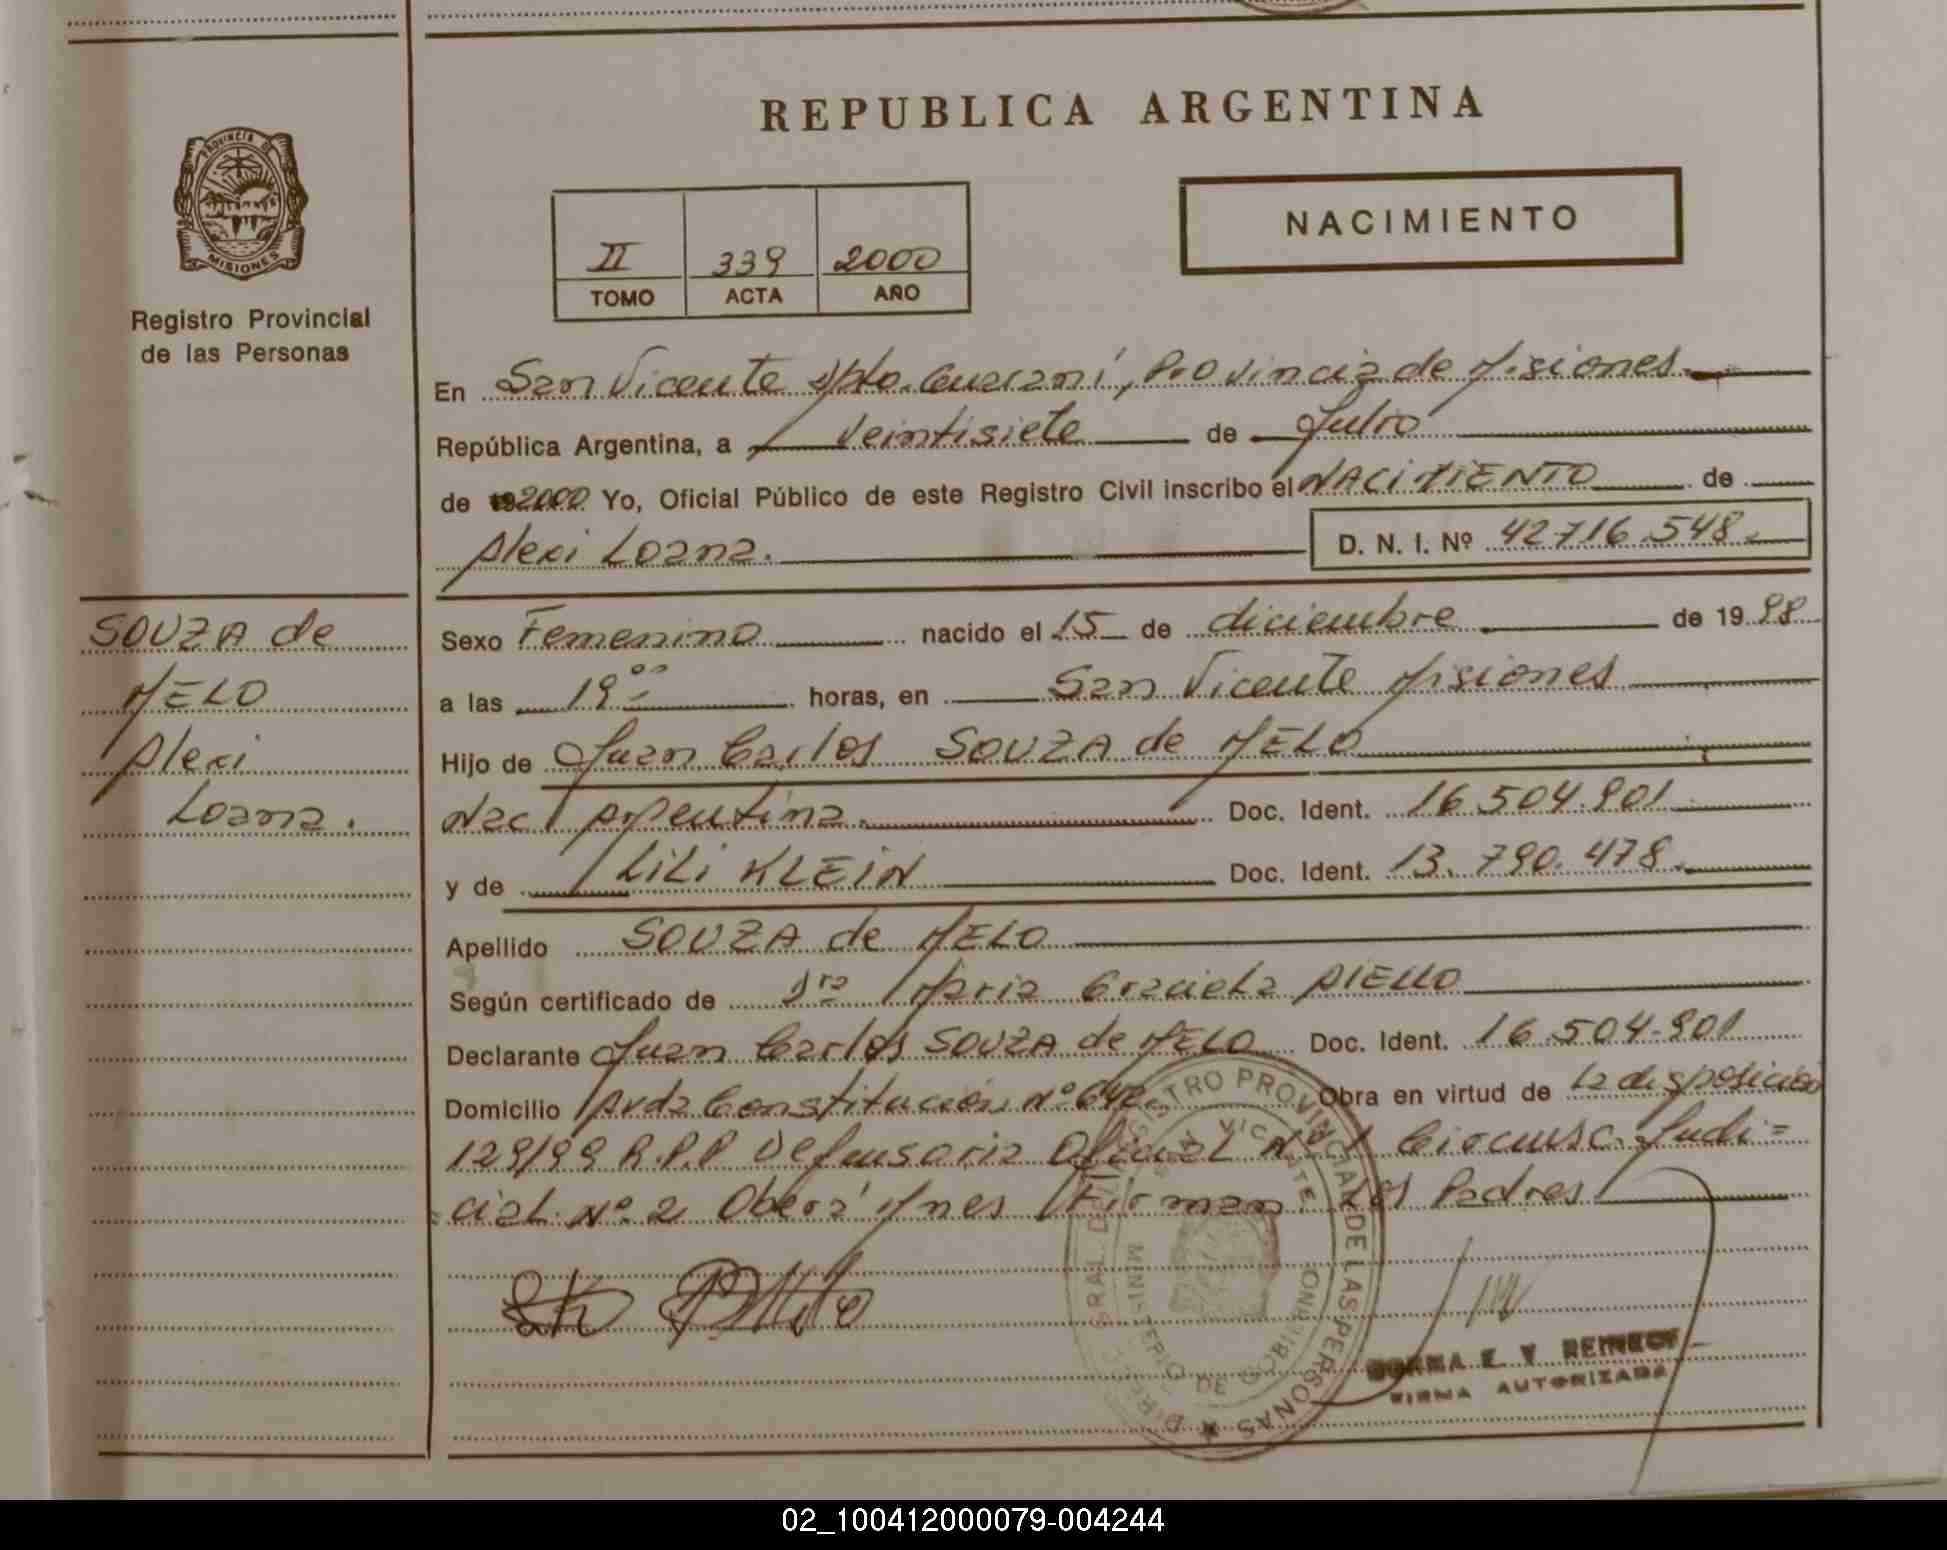 REPUBLICA ARGENTINA
PROVINCIA DE
MISIONES
Registro Provincial
de las Personas
II 339 2000
TOMO ACTA AÑO
NACIMIENTO
En San Vicente Dpto. Guaraní, Provincia de Misiones.
República Argentina, a Veintisiete de Julio
de 2000 Yo, Oficial Público de este Registro Civil inscribo el NACIMIENTO de
Alexi Loana.
D. N. I. Nº 42716.548.
SOUZA de
MELO
Alexi
Loana.
Sexo Femenino nacido el 15 de diciembre de 1998
a las 19 00 horas, en San Vicente Misiones
Hijo de Juan Carlos SOUZA de MELO
Nac Argentina. Doc. Ident. 16.504.901
y de LiLi KLEiN Doc. Ident. 13.790.478.
Apellido SOUZA de MELO
Según certificado de Dra Maria Graciela AIELLO
Declarante Juan Carlos SOUZA de MELO Doc. Ident. 16.504.901
Domicilio Avda Constitución Nº 640. Obra en virtud de la disposición
129/99 R.P.P Defensoria Oficial Nº 1 Circunsc. Judi=
cial Nº 2 Oberá Mnes Firman Los Padres
REGISTRO PROVINCIAL DE LAS PERSONAS
SAN VICENTE
MINISTERIO DE GOBIERNO
NORMA E. V. REINECK
FIRMA AUTORIZADA
02_100412000079-004244